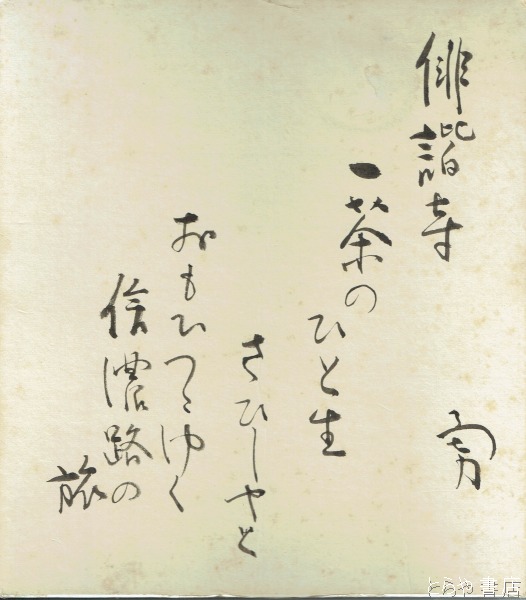 俳諧寺
一茶の
ひと生
さひしやと
おもひつゝゆく
信濃路の
旅
勇
とらや書店